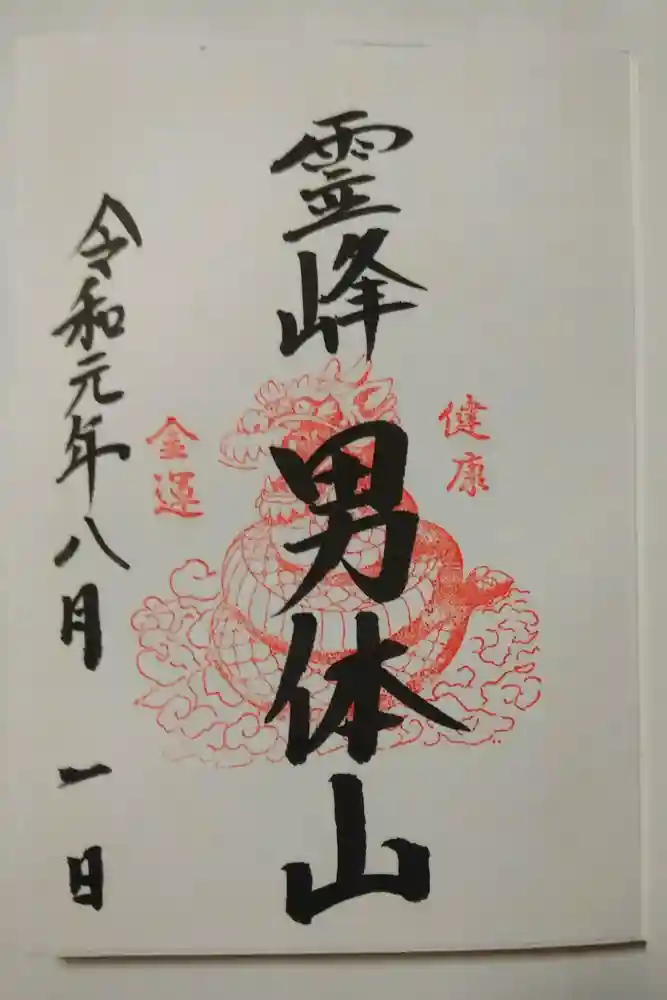 健康
霊峰男体山
金運
令和元年八月一日